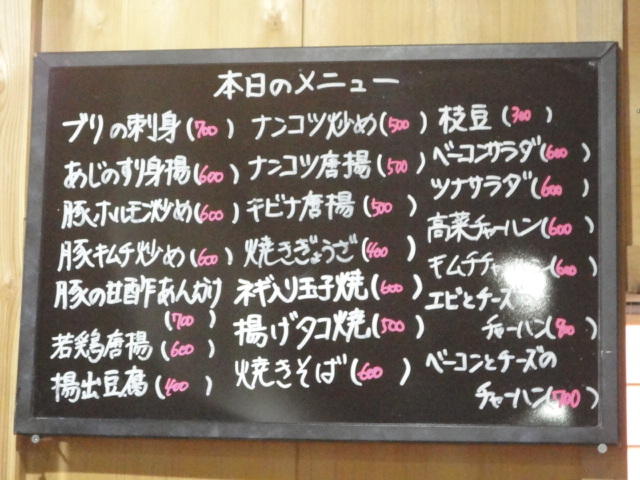 本日のメニュー
ブリの刺身(700)
あじのすり身揚(600)
豚ホルモン炒め(600)
豚キムチ炒め(600)
豚の甘酢あんかけ
(700)
若鶏唐揚(600)
揚出豆腐(400)
ナンコツ炒め(500)
ナンコツ唐揚(500)
キビナ唐揚(500)
焼きぎょうざ(400)
ネギ入り玉子焼(600)
揚げタコ焼(500)
焼きそば(600)
枝豆(300)
ベーコンサラダ(600)
ツナサラダ(600)
高菜チャーハン(600)
キムチチャーハン(600)
エビとチーズの
チャーハン(800)
ベーコンとチーズの
チャーハン(700)